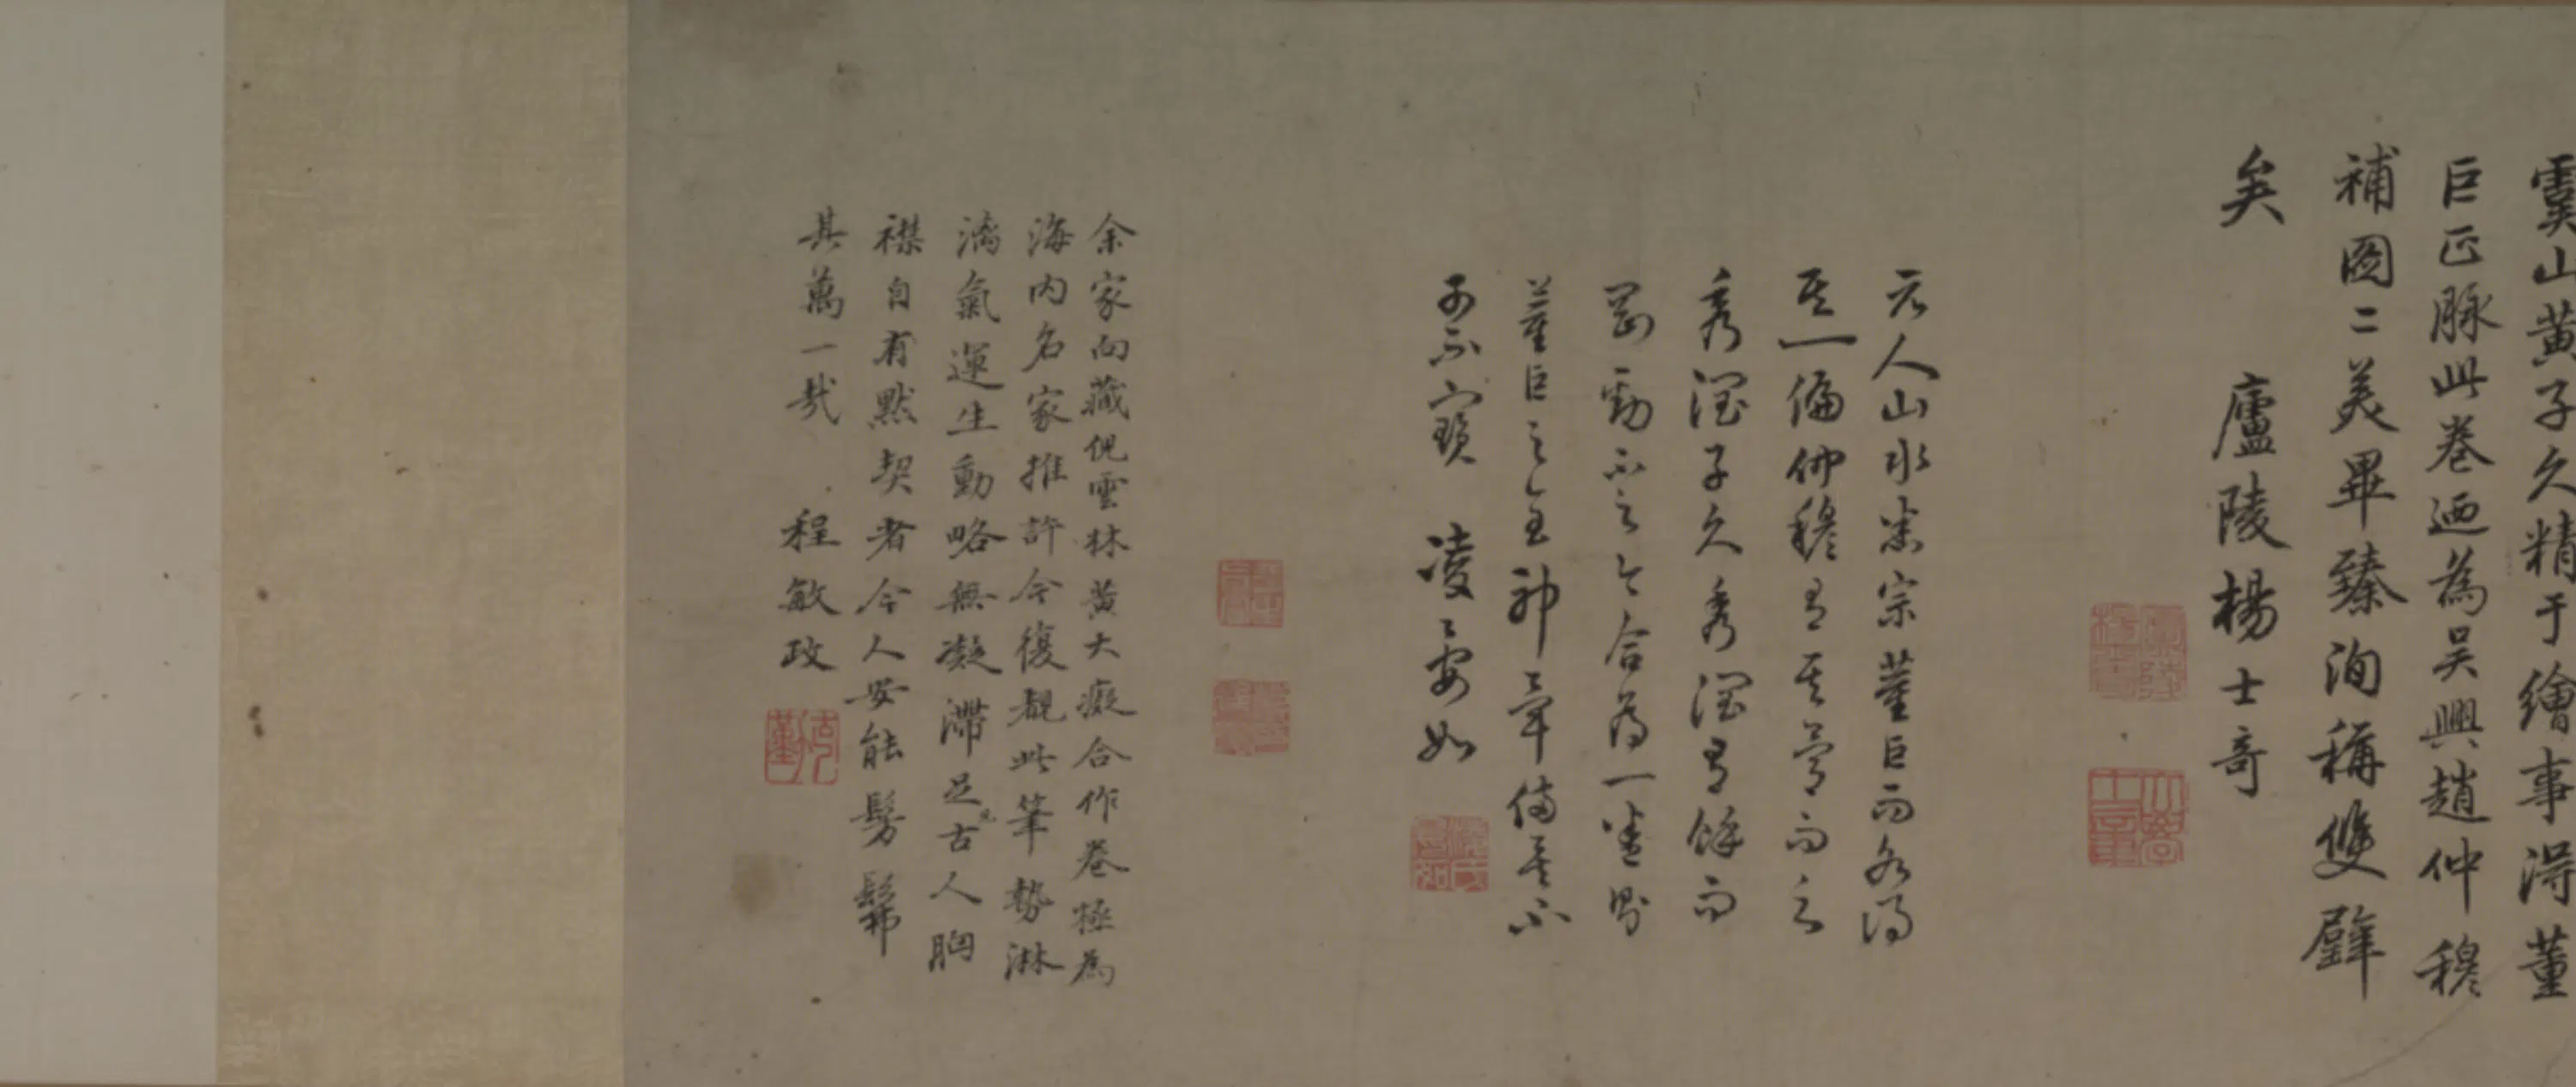 虞山黃子久精于繪事得董
巨正脉此卷迺為吳興趙仲穆
補圖二美畢臻洵稱雙璧
矣 廬陵楊士奇
元人山水悉宗董巨而各得
其一偏仲穆有其骨而之
秀潤子久秀潤有餘而
蒼勁不足今合為一卷則
董巨之全神畢備矣不
可不寶 凌晏如
余家向藏倪雲林黃大癡合作卷極為
海内名家推許今復覩此筆勢淋
漓氣運生動略無凝滯足見古人胸
襟自有默契者今人安能髣髴
其萬一哉 程敏政